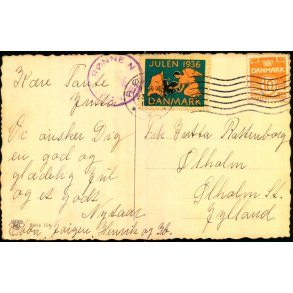 RØNNE
JULEN 1936
DANMARK
DANMARK
Kære Tante
Jutta
Vi ønsker Dig
en god og
glædelig Jul
og et godt
Nytaar
Ebba, Jørgen, Henrik og Ib.
Frk. Jutta Rattenborg
Ølholm
Ølholm St.
Jylland
Serie